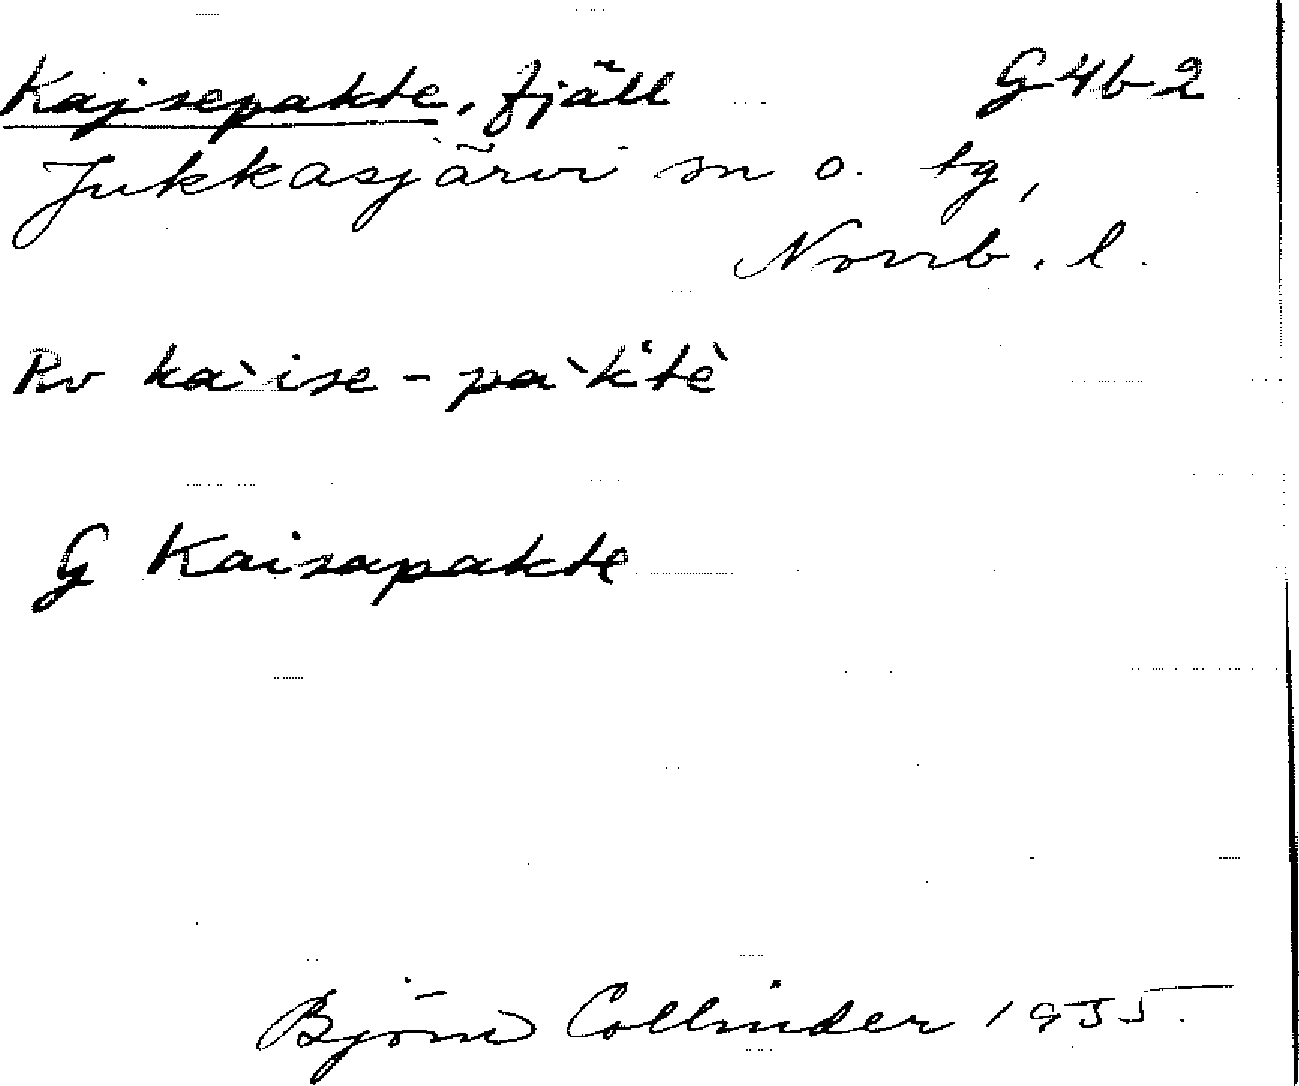 Kajsepakte, fjäll G4b2
Jukkasjärvi sn o. tg,
Norrb. l.
Rv kàise-pàk'tè
G Kaisapakte
Björn Collinder 1955.